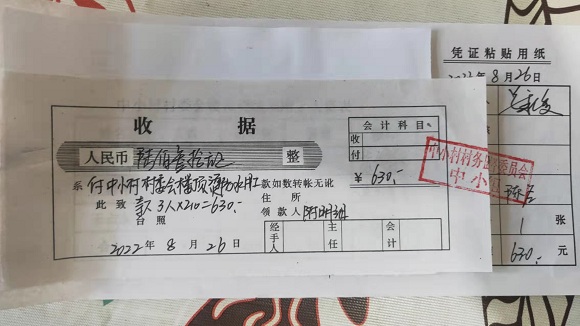 凭证粘贴用纸
2022年8月26日
收据
会计科目
收
付
人民币 陆佰叁拾元 整
¥ 630.-
系 付中小村村委会楼顶 款如数转帐无讹
此致 款3人×210=630.- 住所
台照 领款人
2022年8月26日
经手人
主任
会计
中小村村务监督委员会
中小
1 张
630.- 元